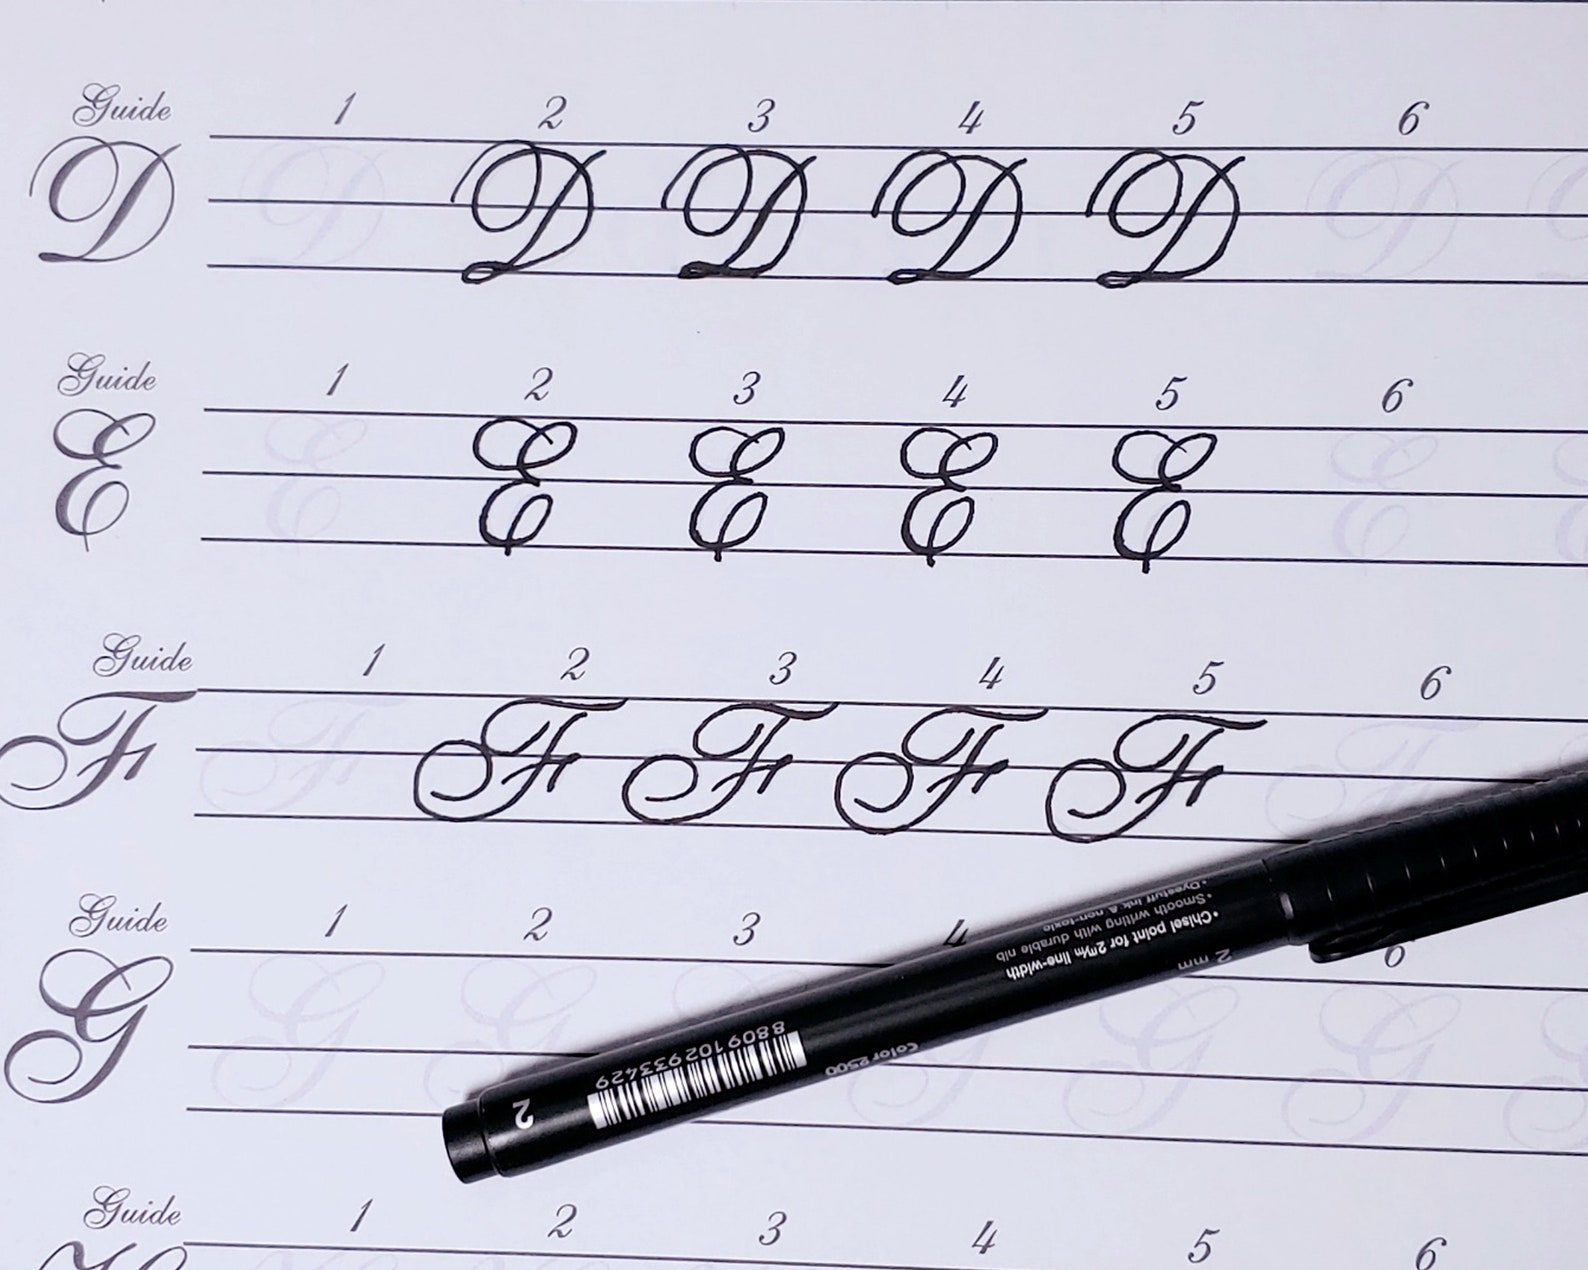 Guide 1 2 3 4 5 6
D D D D D D D
E E E E E E E
Guide 1 2 3 4 5 6
F F F F F F F
Guide 1 2 3 4 6
G G G G G G G
• Dyestuff ink & non-toxic
• Smooth writing with durable nib
• Chisel point for 2m/m line-width
2 mm
Color 2500
8809102933429
2
Guide 1 2 3 4 5 6